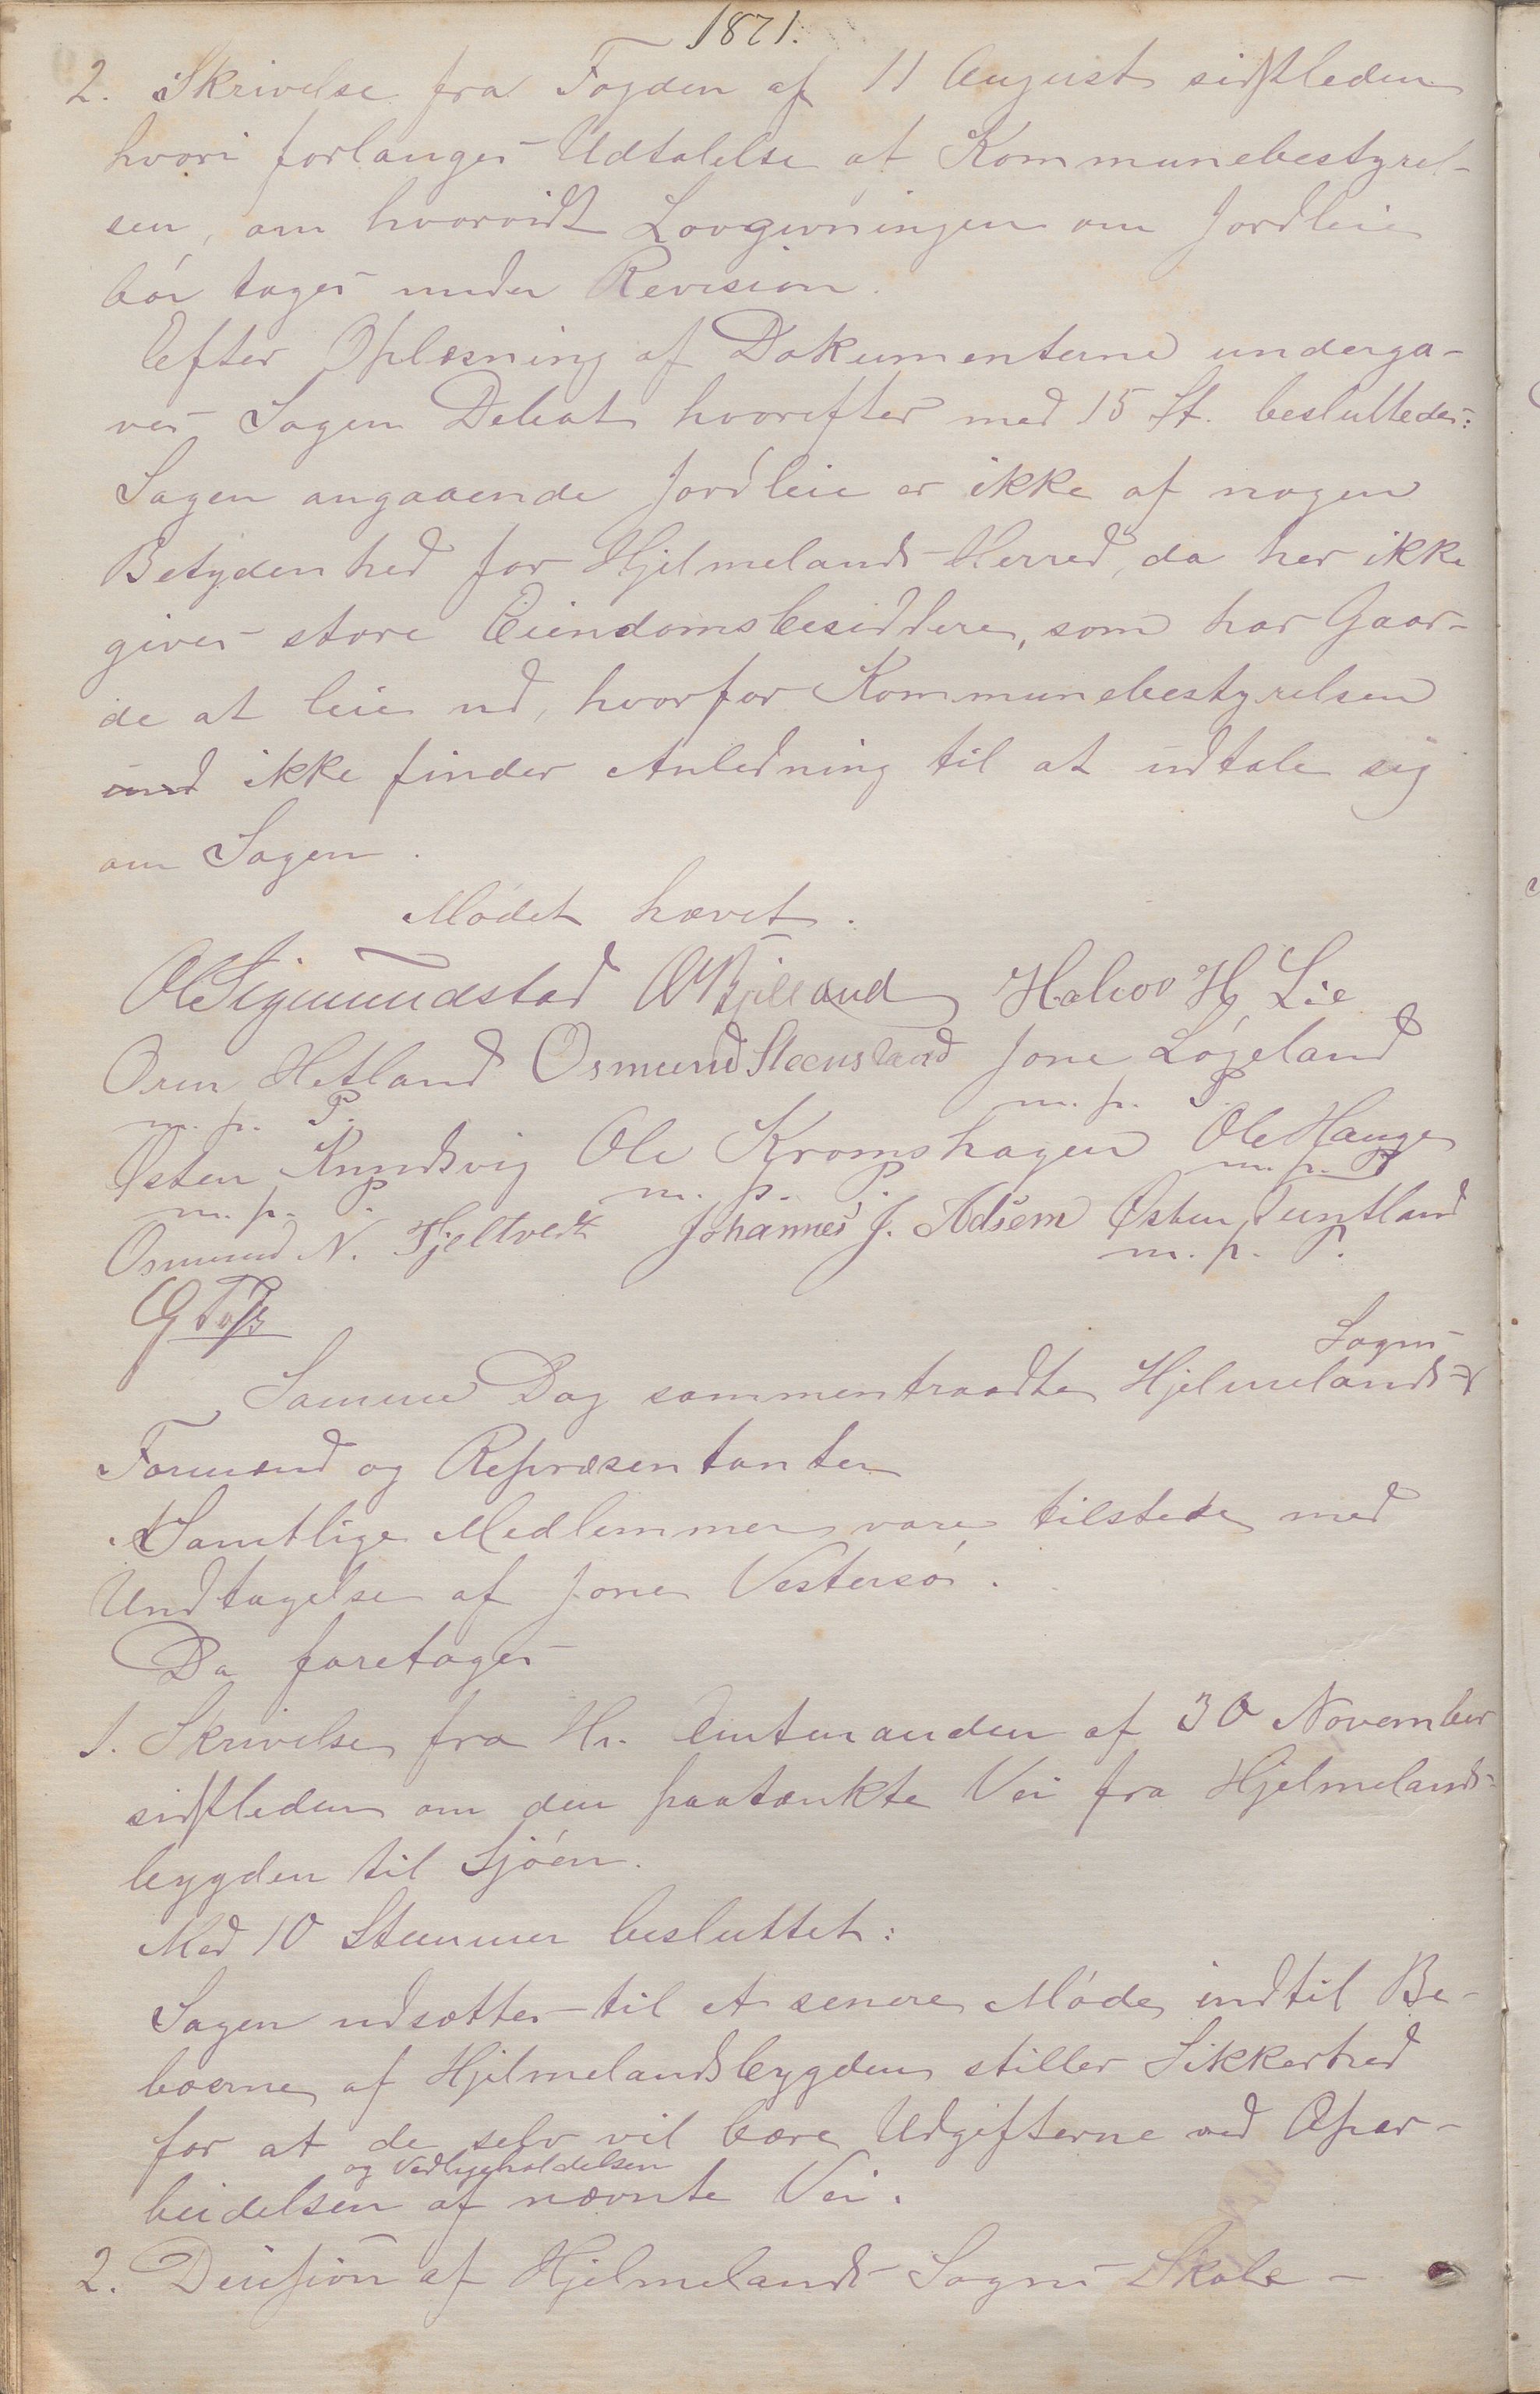 1871.
2. Skrivelse fra Fogden af 11 August sidstleden
hvori forlanges Udtalelse af Kommunebestyrel-
sen, om hvorvidt Lovgivningen om Jordleie
bør tages under Revision.
Efter Oplæsning af Dokumenterne underga-
ves Sagen Debat hvorefter med 15 St. besluttedes:
Sagen angaaende Jordleie er ikke af nogen
Betydenhed for Hjelmelands Herred, da her ikke
gives store Eiendomsbesiddere, som har Gaar-
de at leie ud, hvorfor Kommunebestyrelsen
ikke finder Anledning til at udtale sig
om Sagen.
Mødet hævet.
O Sigmundstad Halvor H. Lie
Orm Hetland Osmund Steensland Jone Løgeland
m. p. P. m. p. P.
Østen Knudsvig Ole Kromshagen Ole Hauge
m. p. P. m. p. P. m. p. P.
Osmund N. Hjeltvedt Johannes J. Adsem Østen Tuntland
m. p. P.
Sogns-
Samme Dag sammentraadte Hjelmelands
Formænd og Repræsentanter
Samtlige Medlemmer vare tilstede med
Undtagelse af Jone Vestersø.
Da foretages
1. Skrivelse fra Hr. Amtmanden af 30 November
sidstleden om den paatænkte Vei fra Hjelmelands-
bygden til Sjøen.
Med 10 Stemmer besluttet:
Sagen udsættes til et senere Møde, indtil Be-
boerne af Hjelmelandsbygden stiller Sikkerhed
for at de selv vil bære Udgifterne ved Opar-
og Vedligeholdelsen
beidelsen af nævnte Vei.
2. Decision af Hjelmelands Sogns Skole-